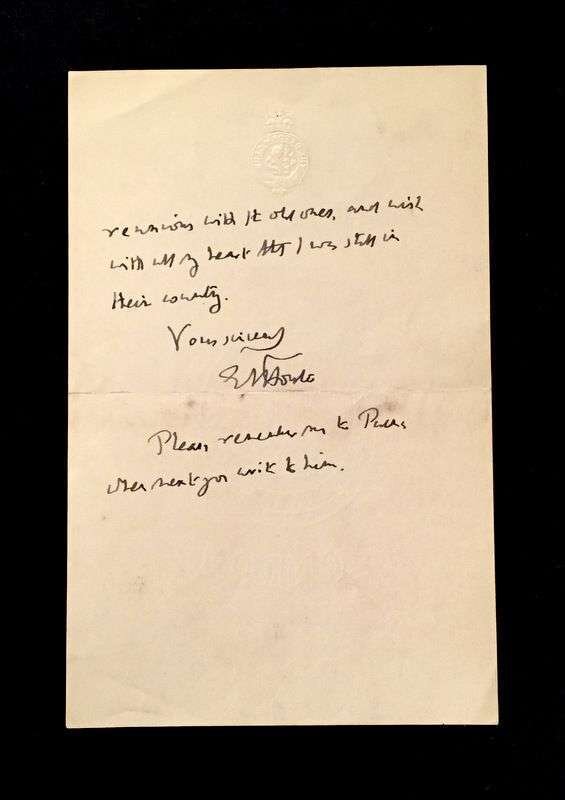 reunions with the old ones, and wish
with all my heart that I was still in
their country.
Yours sincerely
EMForster
Please remember me to
when next you write to him.